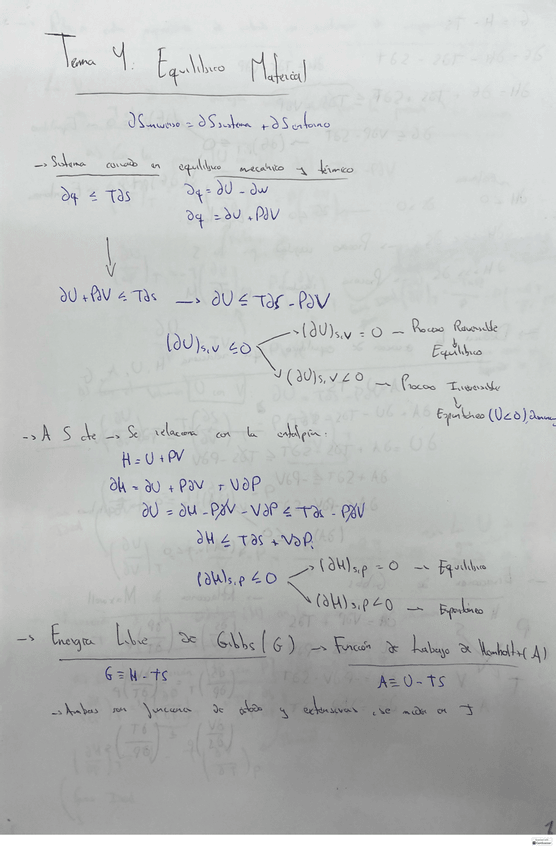 Tema 4: Equilibrio Material
∂Suniverso = ∂Ssistema + ∂Sentorno
→ Sistema cerrado en equilibrio mecánico y térmico
∂q ≤ T∂s
∂q = ∂U - ∂w
∂q = ∂U + P∂V
∂U + P∂V ≤ T∂s → ∂U ≤ T∂s - P∂V
(∂U)s,v ≤ 0
(∂U)s,v = 0 — Proceso Reversible
Equilibrio
(∂U)s,v < 0 — Proceso Irreversible
Espontáneo (U<0),
→ A S cte → Se relaciona con la entalpía:
H = U + PV
∂H = ∂U + P∂V + V∂P
∂U = ∂H - P∂V - V∂P ≤ T∂s - P∂V
∂H ≤ T∂s + V∂P
(∂H)s,p ≤ 0
(∂H)s,p = 0 — Equilibrio
(∂H)s,p < 0 — Espontáneo
→ Energía Libre de Gibbs (G) → Función de trabajo de Hemholtz (A)
G ≡ H - TS
A ≡ U - TS
→ Ambas son funciones de estado y extensivas, se miden en J
1